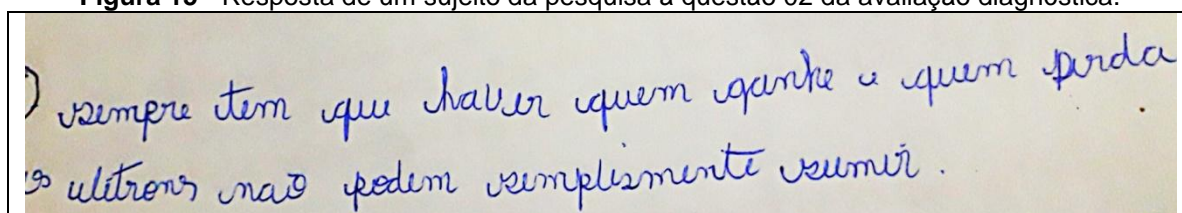 Resposta de um sujeito da pesquisa a questão 02 da avaliação diagnóstica.
) sempre tem que haver quem ganhe e quem perda
os elétrons não podem simplismente sumir.